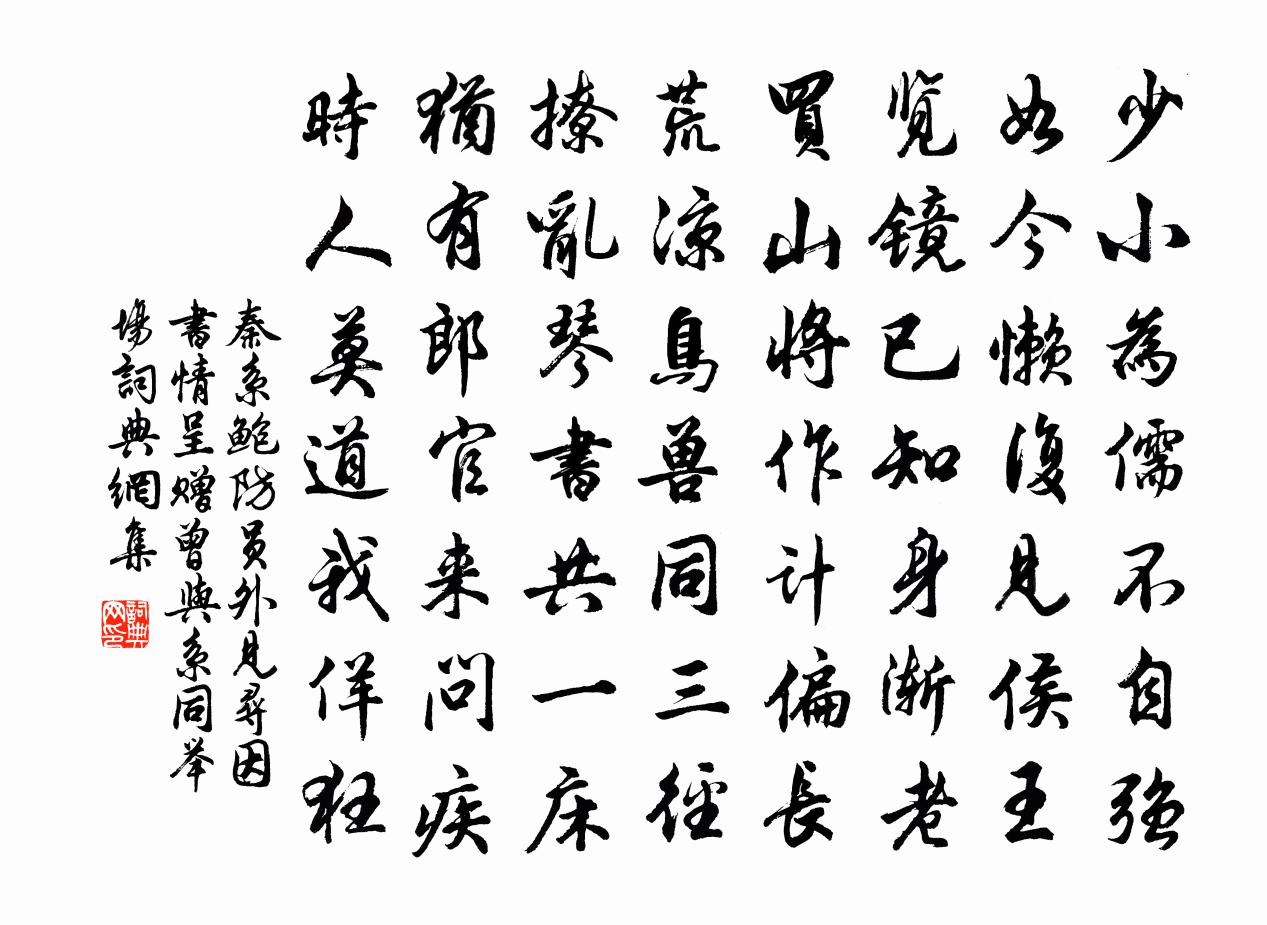 少小為儒不自強
如今懶復見侯王
覽镜已知身漸老
買山將作计偏長
荒凉鳥兽同三徑
撩亂琴書共一床
猶有郎官来问疾
時人莫道我佯狂
秦系鲍防員外見尋因
書情呈赠曾與系同举
場詞典網集
詞典网印